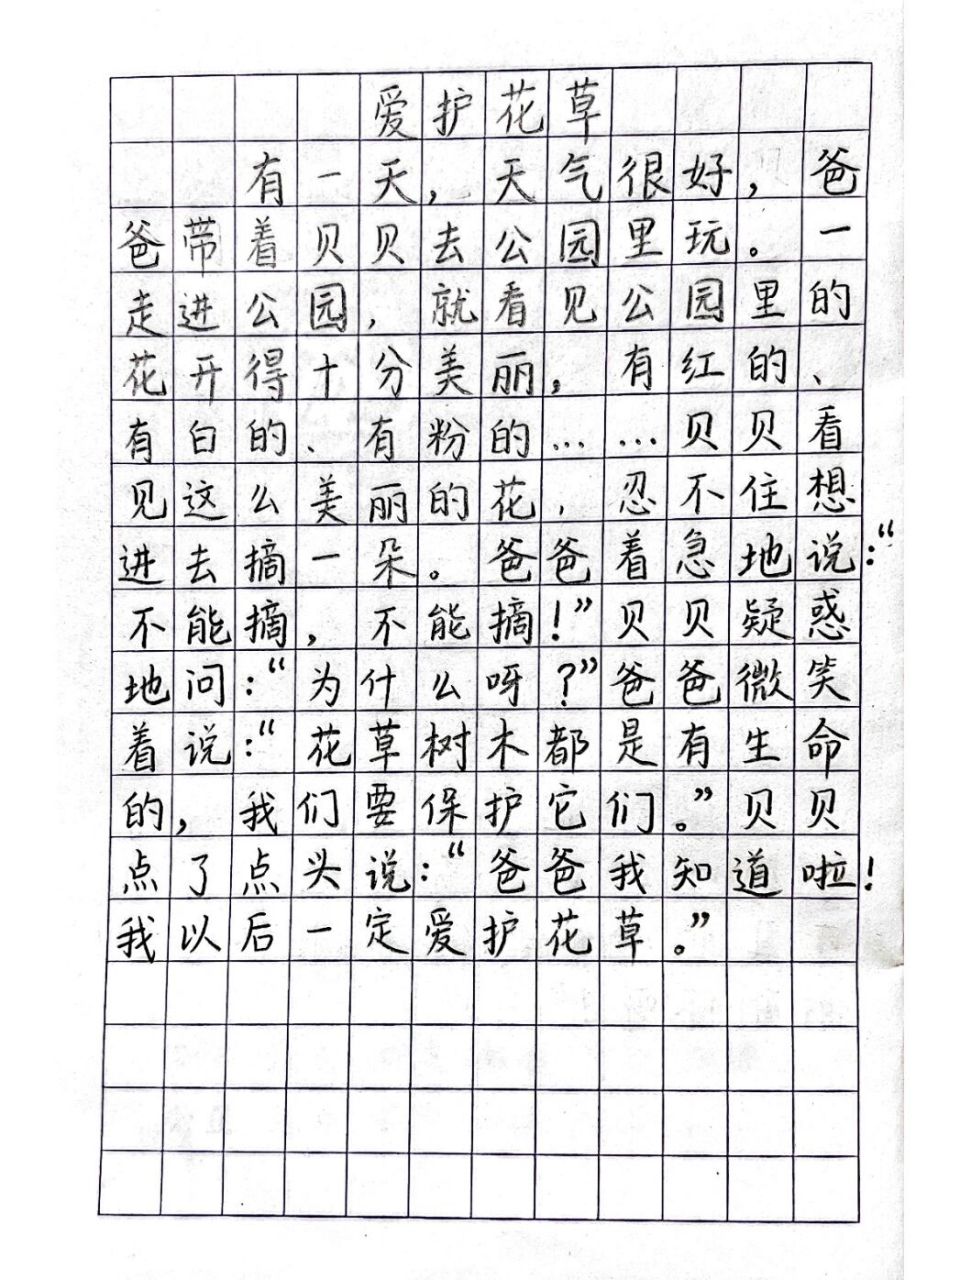 爱护花草
有一天，天气很好，爸
爸带着贝贝去公园里玩。一
走进公园，就看见公园里的
花开得十分美丽，有红的、
有白的、有粉的……贝贝看
见这么美丽的花，忍不住想
进去摘一朵。爸爸着急地说：“
不能摘，不能摘！”贝贝疑惑
地问：“为什么呀？”爸爸微笑
着说：“花草树木都是有生命
的，我们要保护它们。”贝贝
点了点头说：“爸爸我知道啦！
我以后一定爱护花草。”